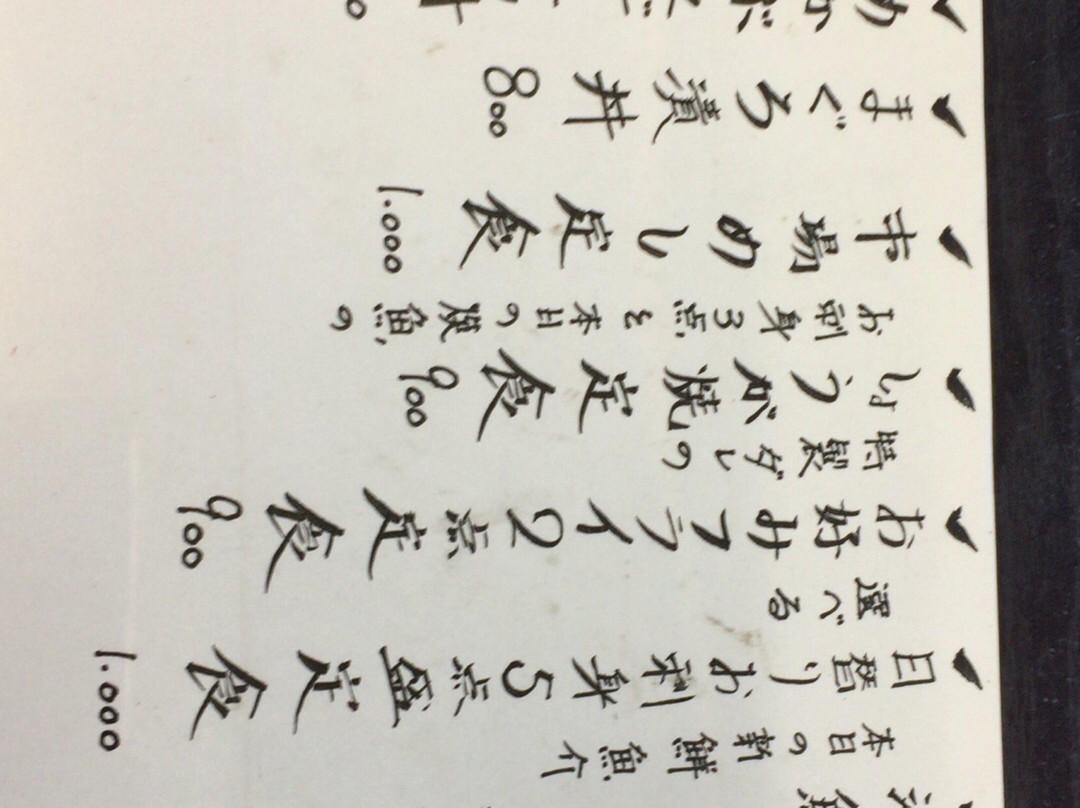 本日の新鮮魚介
日替りお刺身5点盛定食 1.000
選べる
お好みフライ2点定食 900
特製ダレの
しょうが焼定食 900
お刺身3点と本日の焼魚の
市場めし定食 1.000
まぐろ漬丼 800